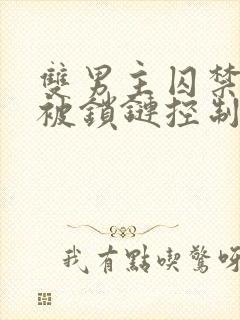 雙男主囚禁
被鎖鏈控制
我有點喫驚呀